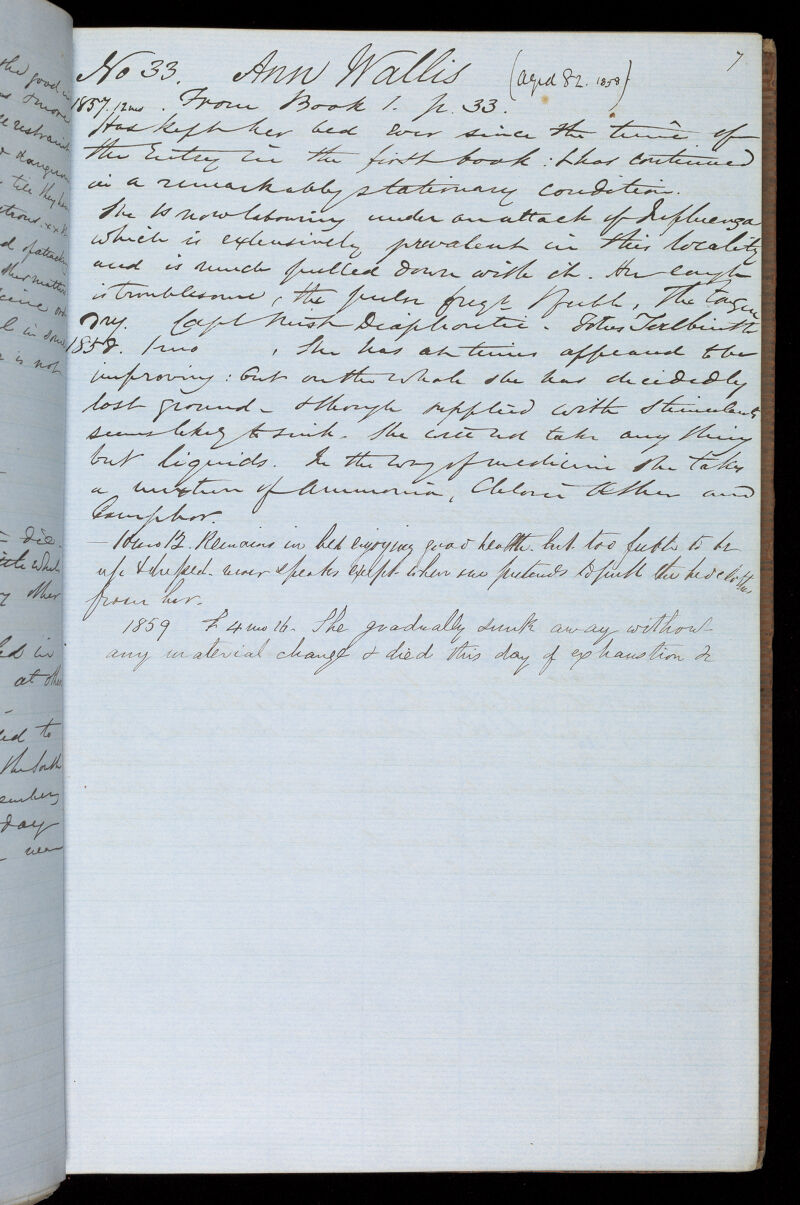 7
No 33. Ann Wallis (aged 82. 1858)
1857. 12mo. From Book 1. p. 33.
Has kept her bed ever since the time of
the Entry in the first book: & has continued
in a remarkably stationary condition.
She is now labouring under an attack of Influenza
which is extensively prevalent in this locality
and is much pulled down with it. Her cough
is troublesome, the pulse freqt & feeble, the tongue
dry. Capt Mist Diaphoretic. Fotus Terebinth
1858. 1mo , She has at times appeared to be
improving: but on the whole she has decidedly
lost ground - & though supplied with stimulants
seems likely to sink. She will not take any thing
but liquids. In the way of medicine she takes
a mixture of Ammonia, Chloric Æther and
Camphor.
- 10mo 12. Remains in bed enjoying good health. but too feeble to be
up & dressed. never speaks except when one pretends to pull the bed clothes
from her.
1859 4mo 16. She gradually sunk away without
any material change & died this day of exhaustion &c
the good
restraint
till they have
of attacking
in some
is not
die.
other
in
at other
to
the South
day